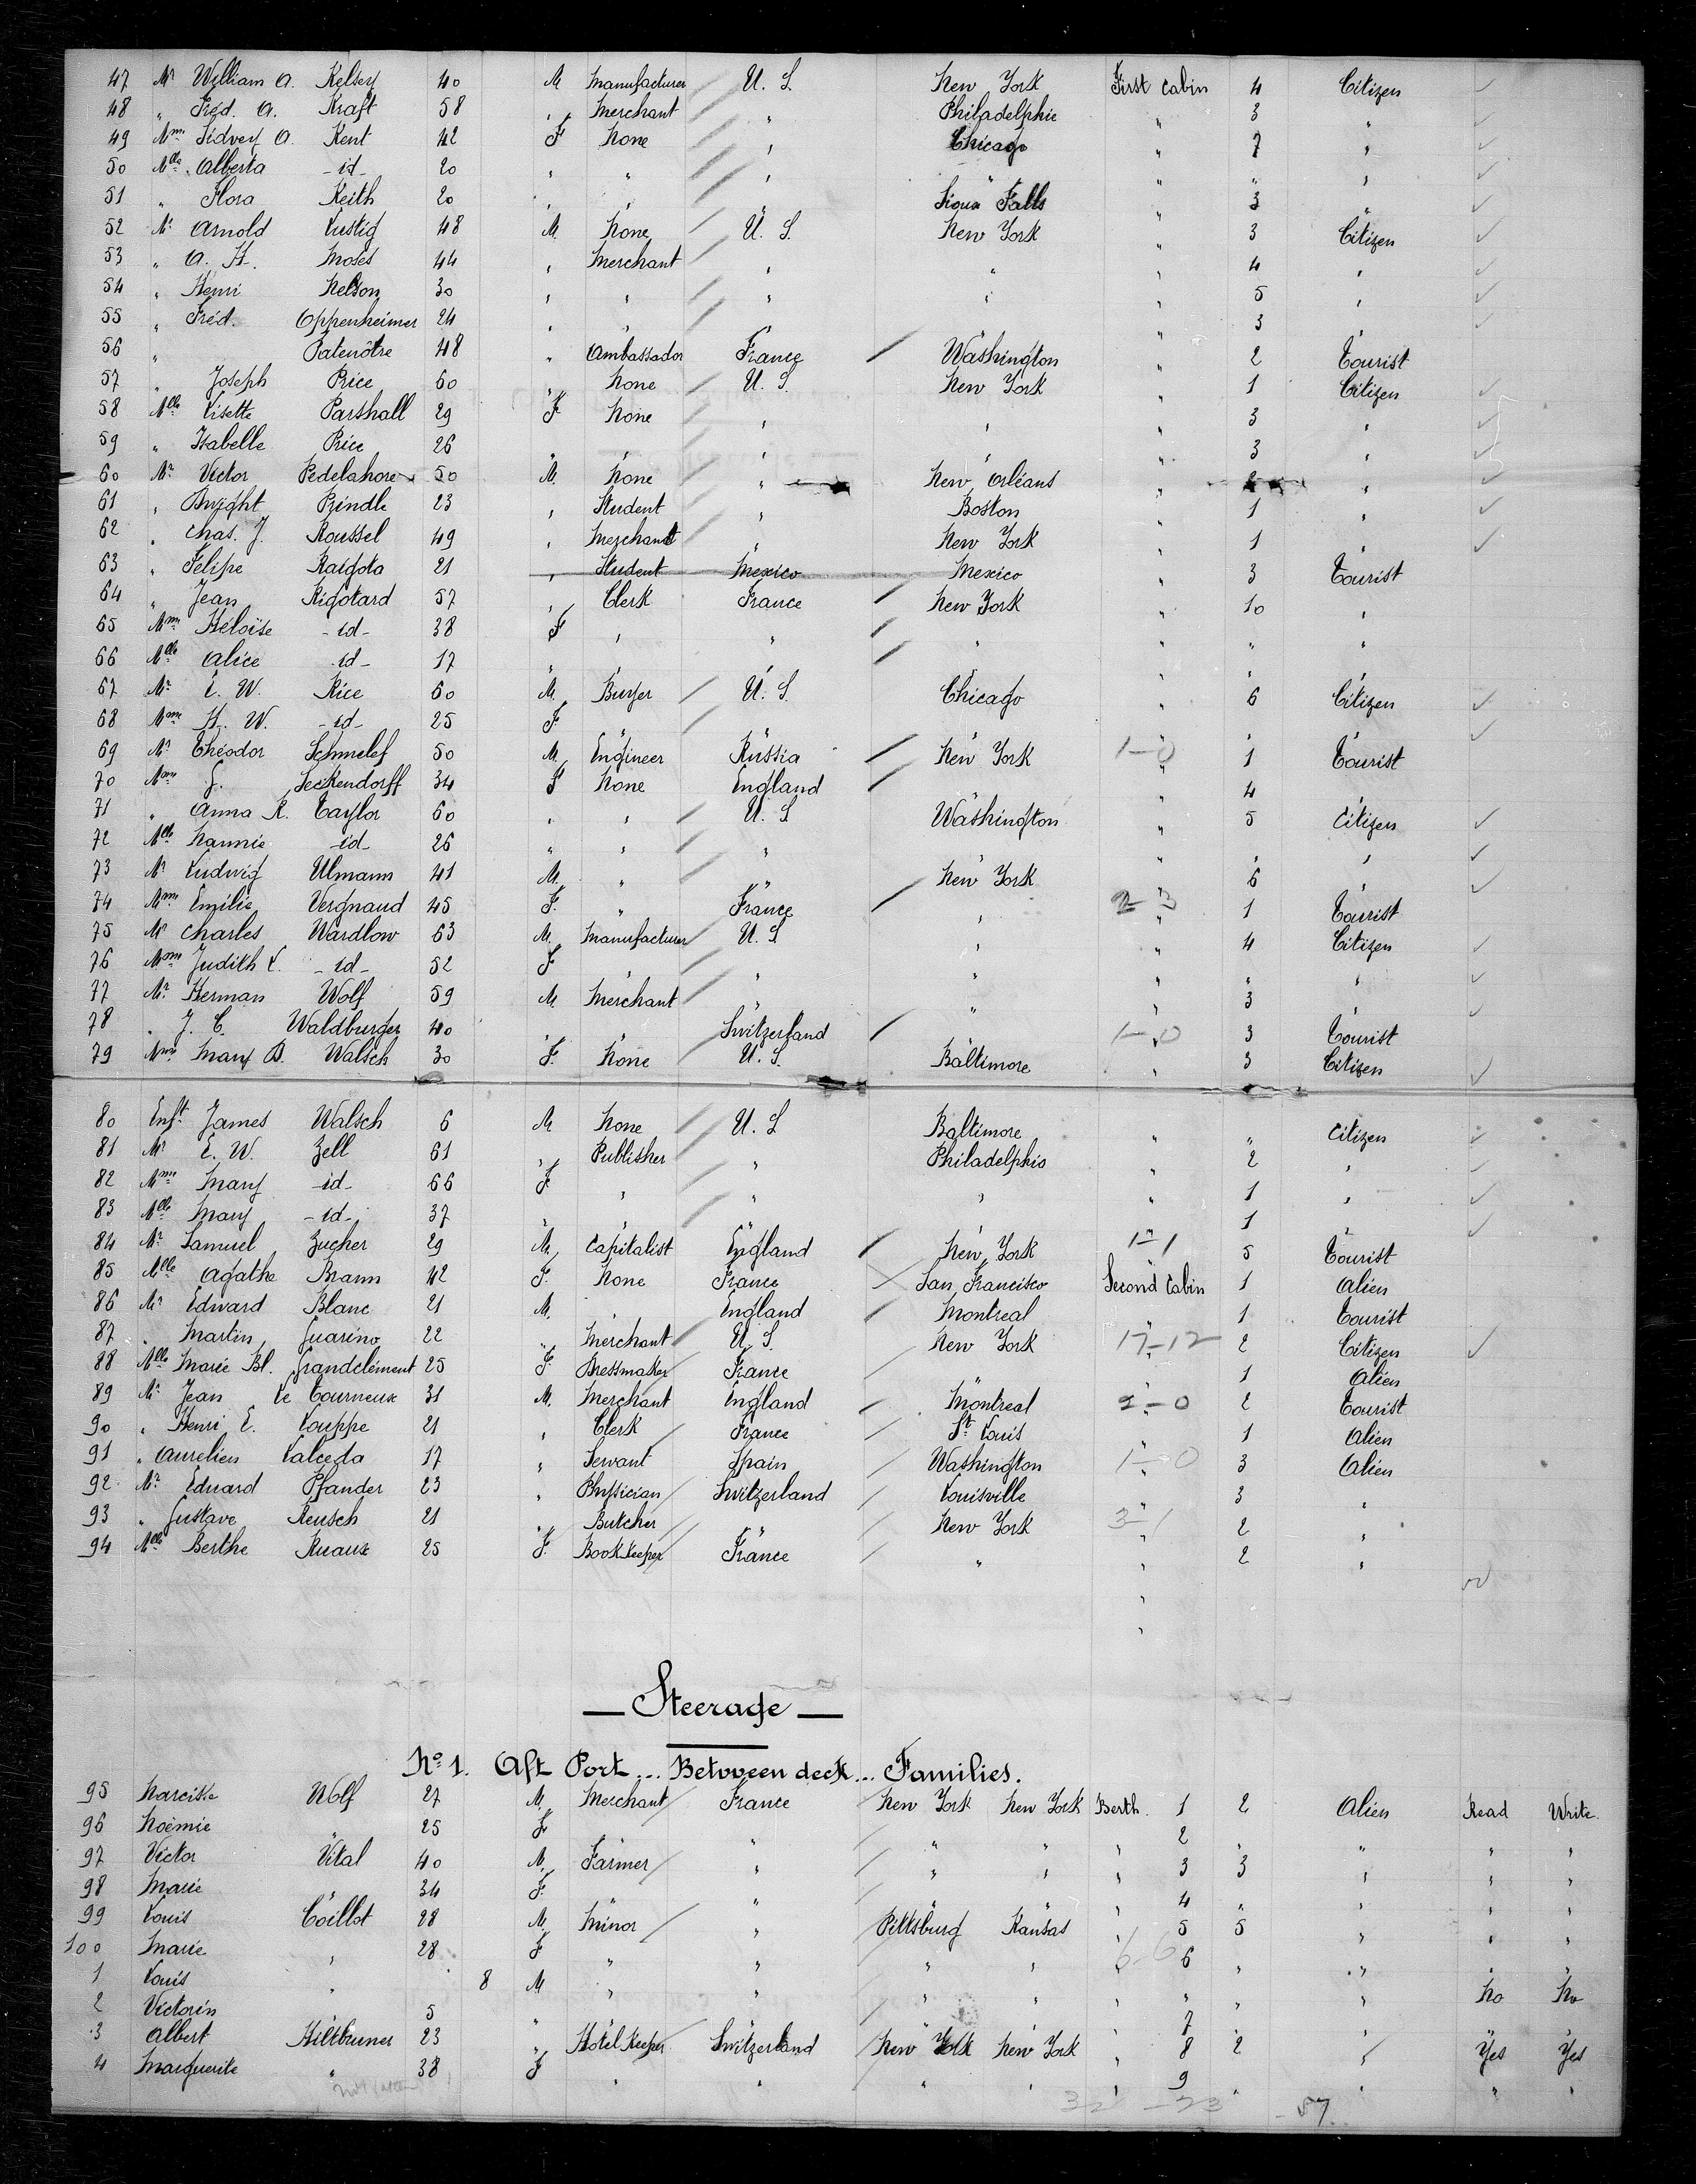 47 Mr William A. Kelsey 40 M Manufacturer U. S. New York First Cabin 4 Citizen
48 " Fréd. A. Kraft 58 " Merchant " Philadelphie " 3 "
49 Mme Sidney A. Kent 42 F None " Chicago " 7 "
50 Mlle Alberta -id- 20 " " " " " "
51 " Flora Keith 20 " " " Falls " 3 "
52 Mr Arnold Lustig 48 M. None U. S. New York " 3 Citizen
53 " A. H. Moses 44 " Merchant " " " 4 "
54 " Henri Nelson 30 " " " " " 5 "
55 " Fréd. Oppenheimer 24 " " " " " 3 "
56 " Patenôtre 48 " Ambassador France Washington " 2 Tourist
57 " Joseph Price 60 " None U. S. New York " 1 Citizen
58 Mlle Lisette Parshall 29 F None " " " 3 "
59 " Isabelle Price 26 " " " " " 3 "
60 Mr Victor Pedelahore 50 M. None " New Orléans " "
61 " Dwight Prindle 23 " Student " Boston " 1 "
62 " Chas. J. Roussel 49 " Merchant " New York " 1 "
63 " Felipe Raigota 21 " Student Mexico Mexico " 3 Tourist
64 " Jean Rigotard 57 " Clerk France New York " 10 "
65 Mme Héloïse -id- 38 F " " " " " "
66 Mlle Alice -id- 17 " " " " " " "
67 Mr E. W. Rice 60 M. Buyer U. S. Chicago " 6 Citizen
68 Mme H. W. -id- 25 F " " " " " "
69 Mr Théodor Schmelef 50 M. Engineer Russia New York 1-0 " 1 Tourist
70 Mme G. Seckendorff 34 F None England " " 4 "
71 " Anna R. Taylor 60 " " U. S Washington " 5 Citizen
72 Mlle Nannie -id- 26 " " " " " " "
73 Mr Ludwig Ulmann 41 M. " " New York " 6 "
74 Mme Emilie Vergnaud 45 F. " France " 2-3 " 1 Tourist
75 Mr Charles Wardlow 63 M. Manufacturer U. S " " 4 Citizen
76 Mme Judith L. -id- 52 F " " " " " "
77 Mr Herman Wolf 59 M. Merchant " " " 3 "
78 " J. C. Waldburger 40 " " Switzerland " 1-0 " 3 Tourist
79 Mme Mary B. Walsch 30 F. None U. S. Baltimore " 3 Citizen
80 Enft James Walsch 6 M None U. S Baltimore " " Citizen
81 Mr E. W. Zell 61 " Publisher " Philadelphia " 2 "
82 Mme Mary -id- 66 F " " " " 1 "
83 Mlle Mary -id- 37 " " " " " 1 "
84 Mr Samuel Zucher 29 M. Capitalist England New York 1-1 " 5 Tourist
85 Mlle Agathe Brann 42 F. None France San Francisco Second Cabin 1 Alien
86 Mr Edward Blanc 21 M. " England Montreal " 1 Tourist
87 " Martin Guarino 22 " Merchant U. S. New York 17-12 " 2 Citizen
88 Mlle Marie Bl. Grandclément 25 F. Dressmaker France " " 1 Alien
89 Mr Jean Le Tourneux 31 M. Merchant England Montreal 2-0 " 2 Tourist
90 " Henri E. Louppe 21 " Clerk France St Louis " 1 Alien
91 " Aurelien Valceda 17 " Servant Spain Washington 1-0 " 3 Alien
92 Mr Eduard Pfander 23 " Physician Switzerland Louisville " 3 "
93 " Gustave Reusch 21 " Butcher " New York 3-1 " 2 "
94 Mlle Berthe Knause 25 F. Book Keeper France " " 2 "
— Steerage —
No 1. Aft Port... Betwveen deck... Families.
95 Narcisse Wolf 27 M. Merchant France New York New York Berth. 1 2 Alien Read Write
96 Noémie " 25 F " " " " 2 " " " "
97 Victor Vital 40 M. Farmer " " " " 3 3 " " "
98 Marie " 34 F. " " " " " 4 " " " "
99 Louis Coillot 28 M. Minor " Pittsburg Kansas " 5 5 " " "
100 Marie " 28 F " " " " " 6 " " " "
1 Louis " 8 M " " " " " " " " No No
2 Victorin " 5 " " " " " " 7 " " " "
3 Albert Hiltbruner 23 " Hôtel Keeper Switzerland New York New York " 8 2 " Yes Yes
4 Marguerite " 38 F " " " " " 9 " " " "
32 - 23 - 57